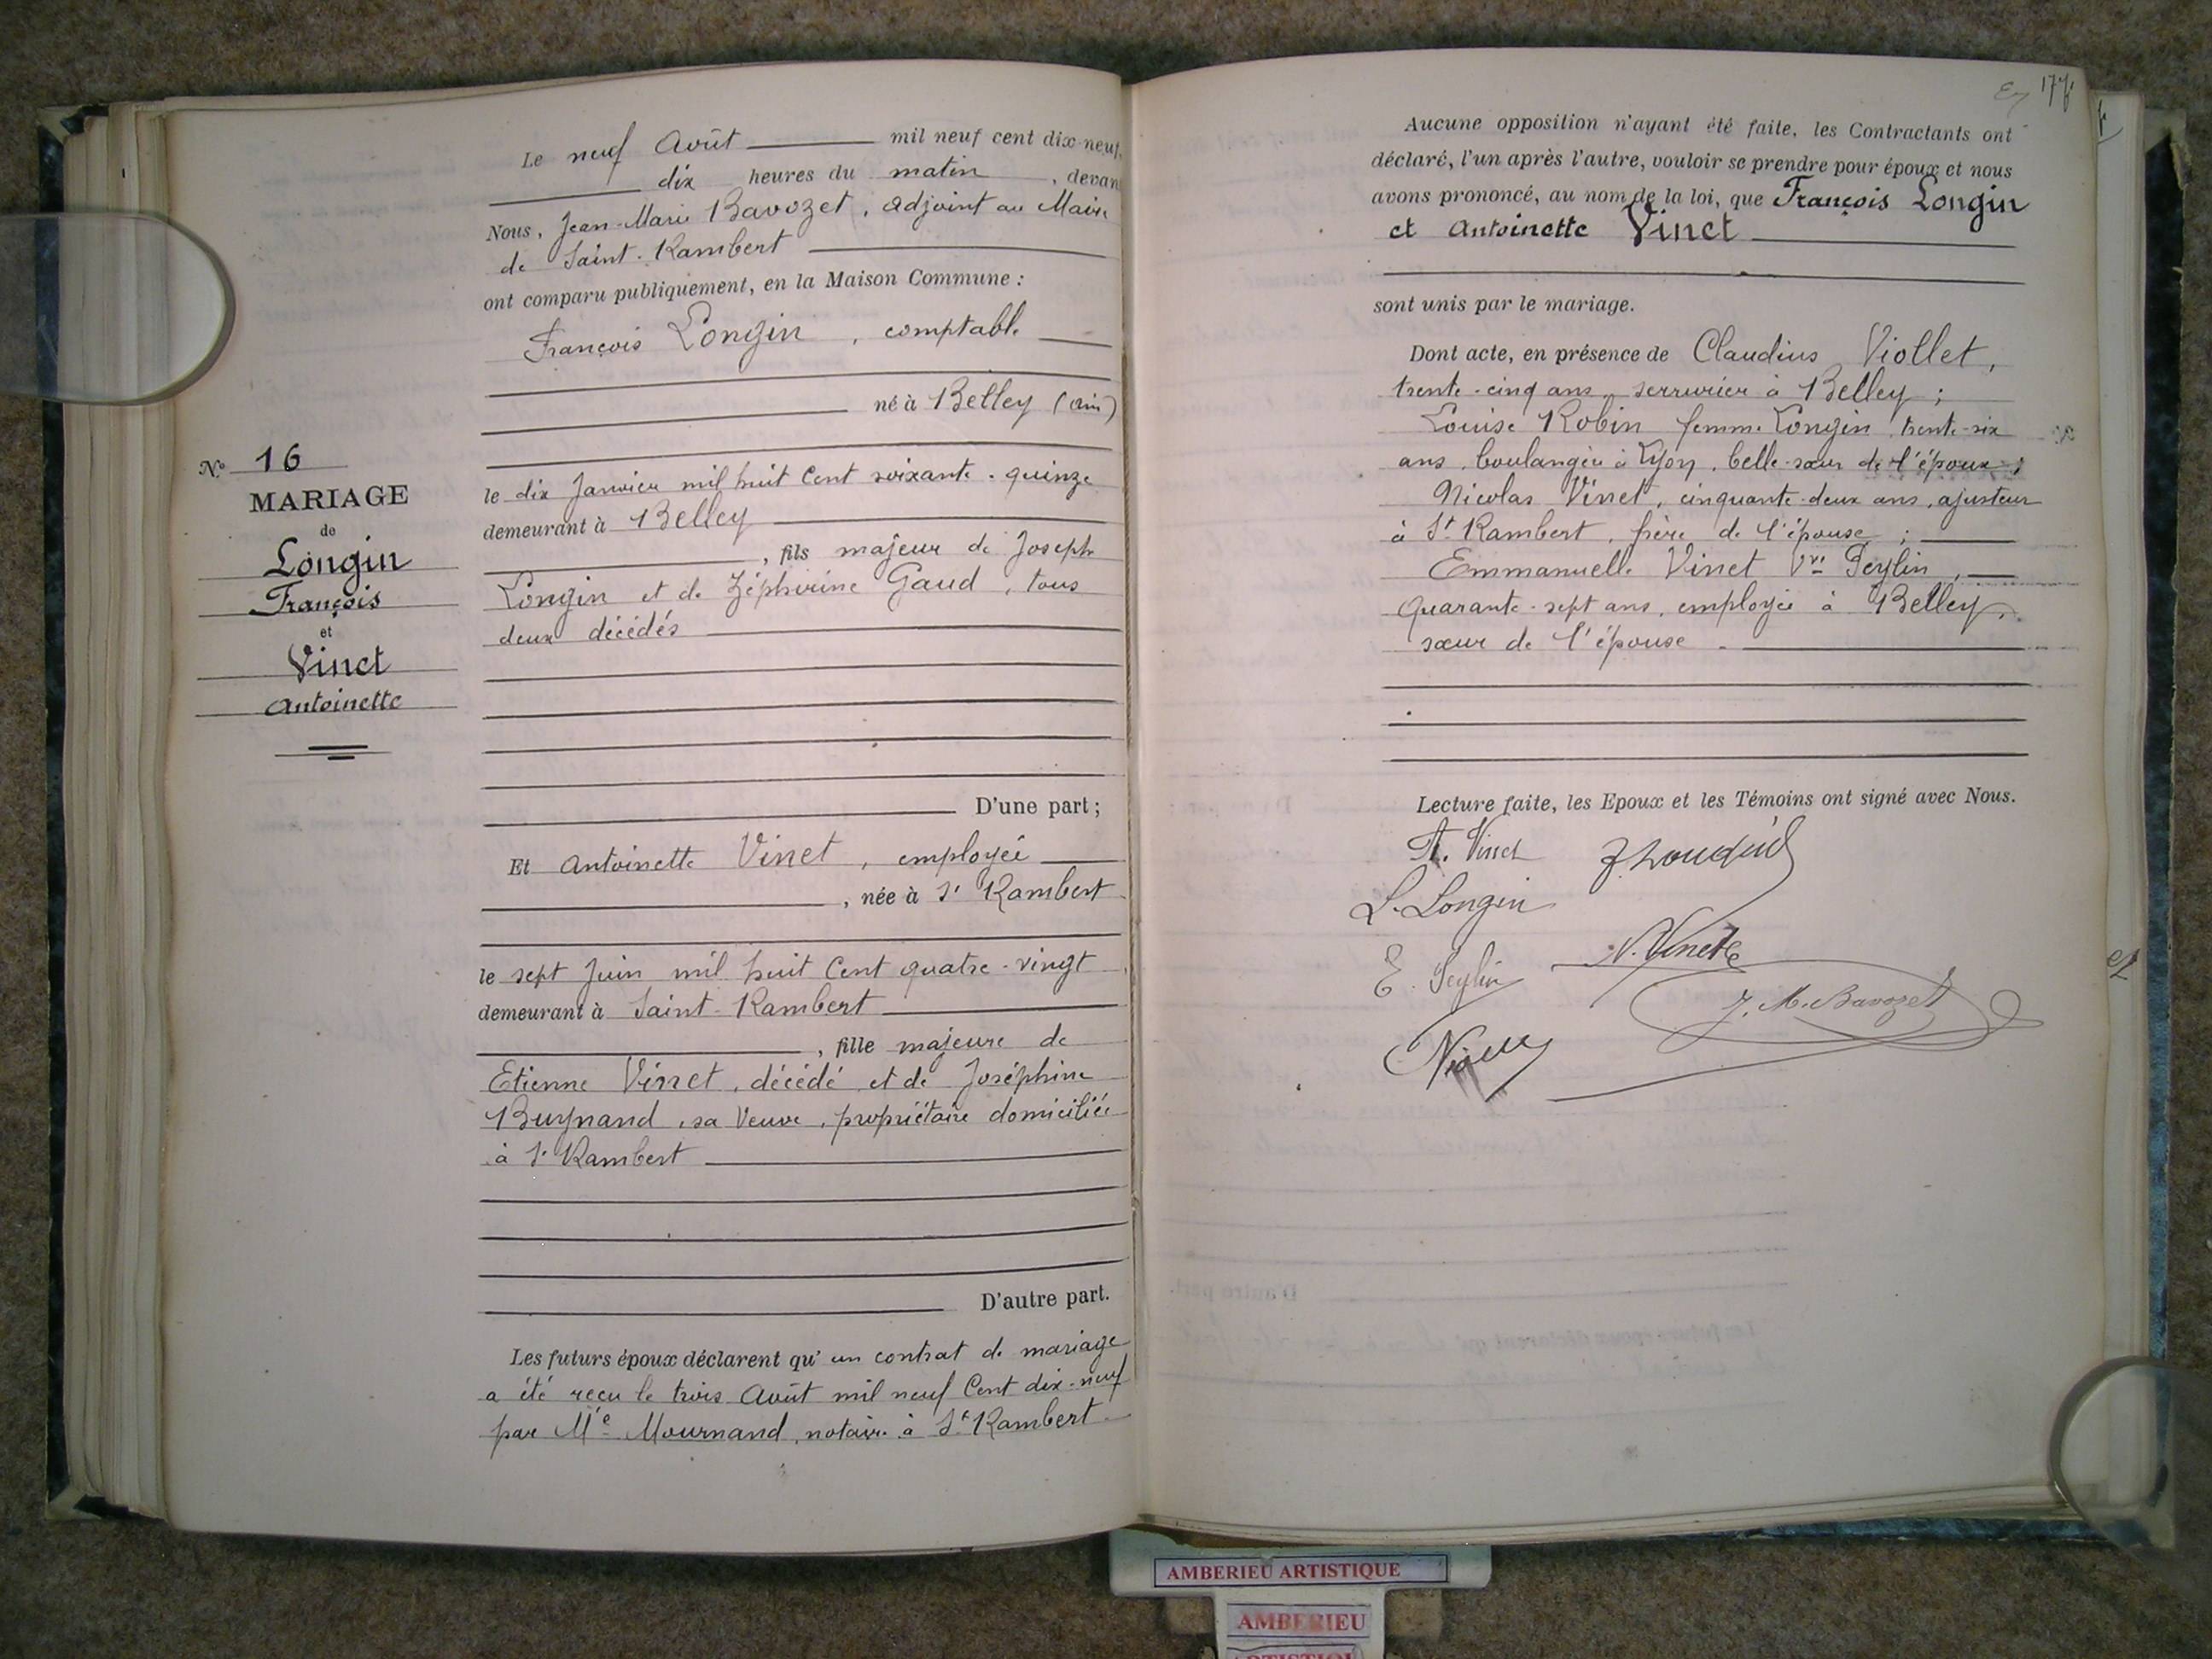 Le neuf Août mil neuf cent dix-neuf,
dix heures du matin, devant
Nous, Jean-Marie Bavozet, adjoint au Maire
de Saint-Rambert
ont comparu publiquement, en la Maison Commune :
François Longin, comptable
né à Belley (Ain)
le dix Janvier mil huit Cent soixante-quinze
demeurant à Belley
, fils majeur de Joseph
Longin et de Zéphirine Gaud, tous
deux décédés
D'une part;
Et Antoinette Vinet, employée
, née à St Rambert
le sept Juin mil huit Cent quatre-vingt
demeurant à Saint-Rambert
, fille majeure de
Etienne Vinet, décédé et de Joséphine
Buynand, sa Veuve, propriétaire domiciliée
à St Rambert
D'autre part.
Les futurs époux déclarent qu'un contrat de mariage
a été reçu le trois Août mil neuf Cent dix-neuf
par Me Mournand, notaire à St Rambert
No 16
MARIAGE
de
Longin
François
et
Vinet
Antoinette
177
Aucune opposition n'ayant été faite, les Contractants ont
déclaré, l'un après l'autre, vouloir se prendre pour époux et nous
avons prononcé, au nom de la loi, que François Longin
et Antoinette Vinet
sont unis par le mariage.
Dont acte, en présence de Claudius Viollet,
trente-cinq ans, serrurier à Belley;
Louise Robin femme Longin, trente-six
ans, boulangère à Lyon, belle-sœur de l'époux;
Nicolas Vinet, cinquante-deux ans, ajusteur
à St Rambert, frère de l'épouse;
Emmanuelle Vinet Vve Peylin,
quarante-sept ans, employée à Belley,
sœur de l'épouse.
Lecture faite, les Epoux et les Témoins ont signé avec Nous.
A. Vinet
L. Longin
E. Peylin N. Vinet
J. M. Bavozet
AMBERIEU ARTISTIQUE
AMBERIEU
ARTISTIQUE